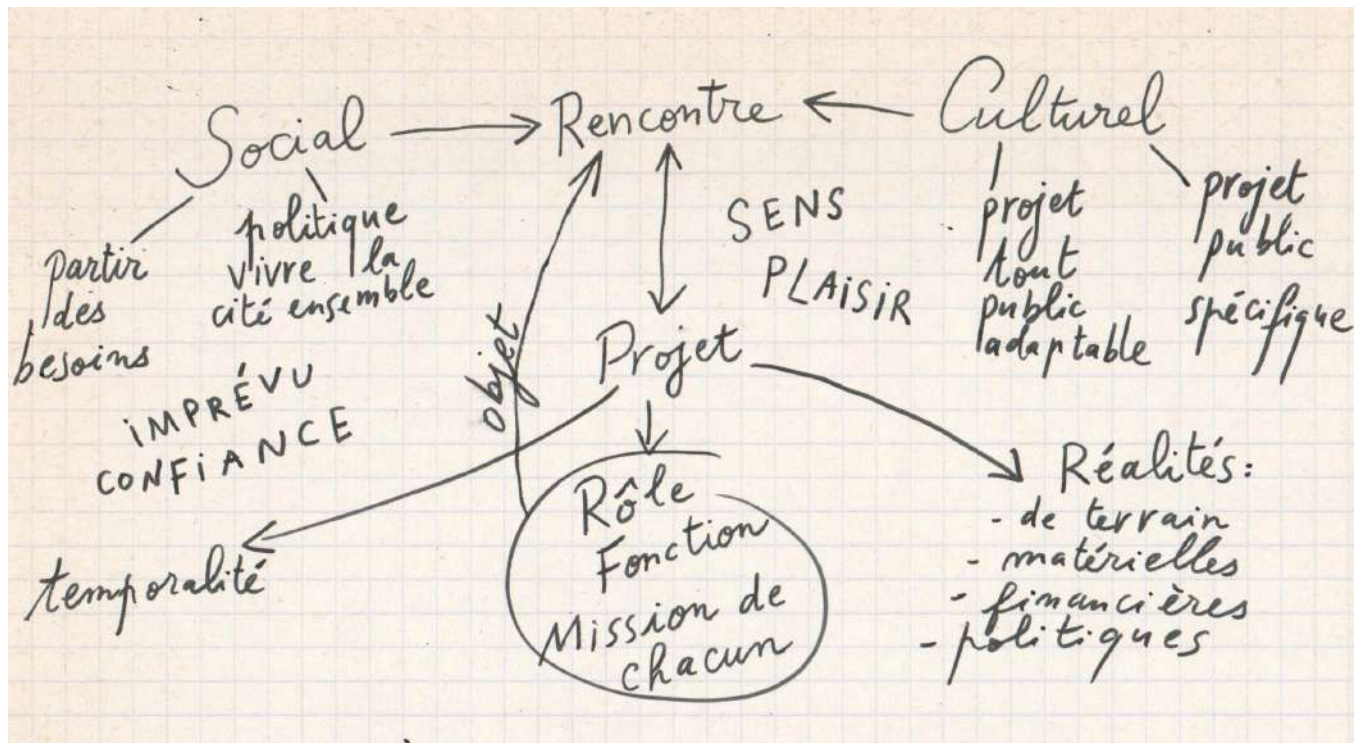 Social
Rencontre
Culturel
partir
des
besoins
politique
vivre la
cité ensemble
SENS
PLAiSiR
projet
tout
public
adaptable
projet
public
spécifique
iMPRÉVU
CONFiANCE
objet
Projet
temporalité
Rôle
Fonction
Mission de
chacun
Réalités:
- de terrain
- matérielles
- financières
- politiques